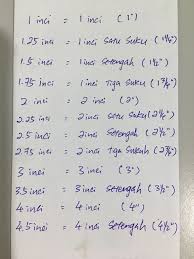 1 inci = 1 inci (1")
1.25 inci = 1 inci satu suku (1¼")
1.5 inci = 1 inci setengah (1½")
1.75 inci = 1 inci tiga suku (1¾")
2 inci = 2 inci (2")
2.25 inci = 2 inci satu suku (2¼")
2.5 inci = 2 inci setengah (2½")
2.75 inci = 2 inci tiga sukuh (2¾")
3 inci = 3 inci (3")
3.5 inci = 3 inci setengah (3½")
4 inci = 4 inci (4")
4.5 inci = 4 inci setengah (4½")